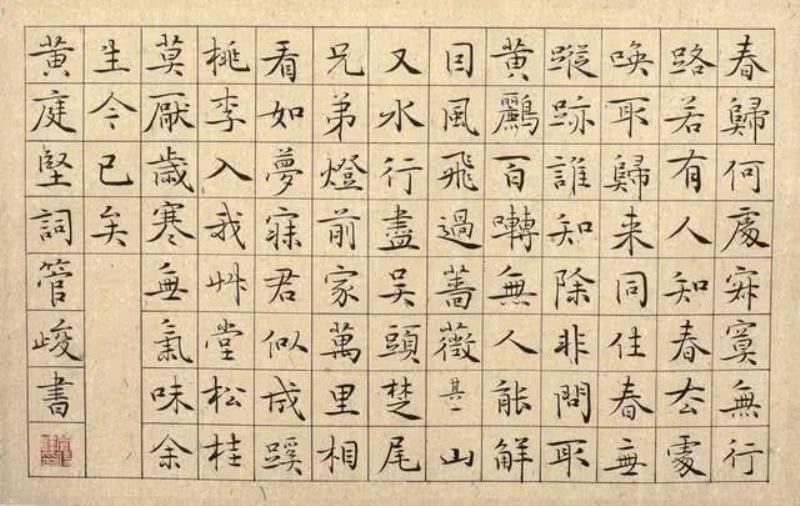 春歸何處寂寞無行
路若有人知春去處
喚取歸来同住春無
蹤跡誰知除非問取
黄鸝百囀無人能解
因風飛過薔薇其一山
又水行盡吳頭楚尾
兄弟燈前家萬里相
看如夢寐君似成蹊
桃李入我艸堂松桂
莫厭歲寒無氣味余
生今已矣
黄庭堅詞管峻書